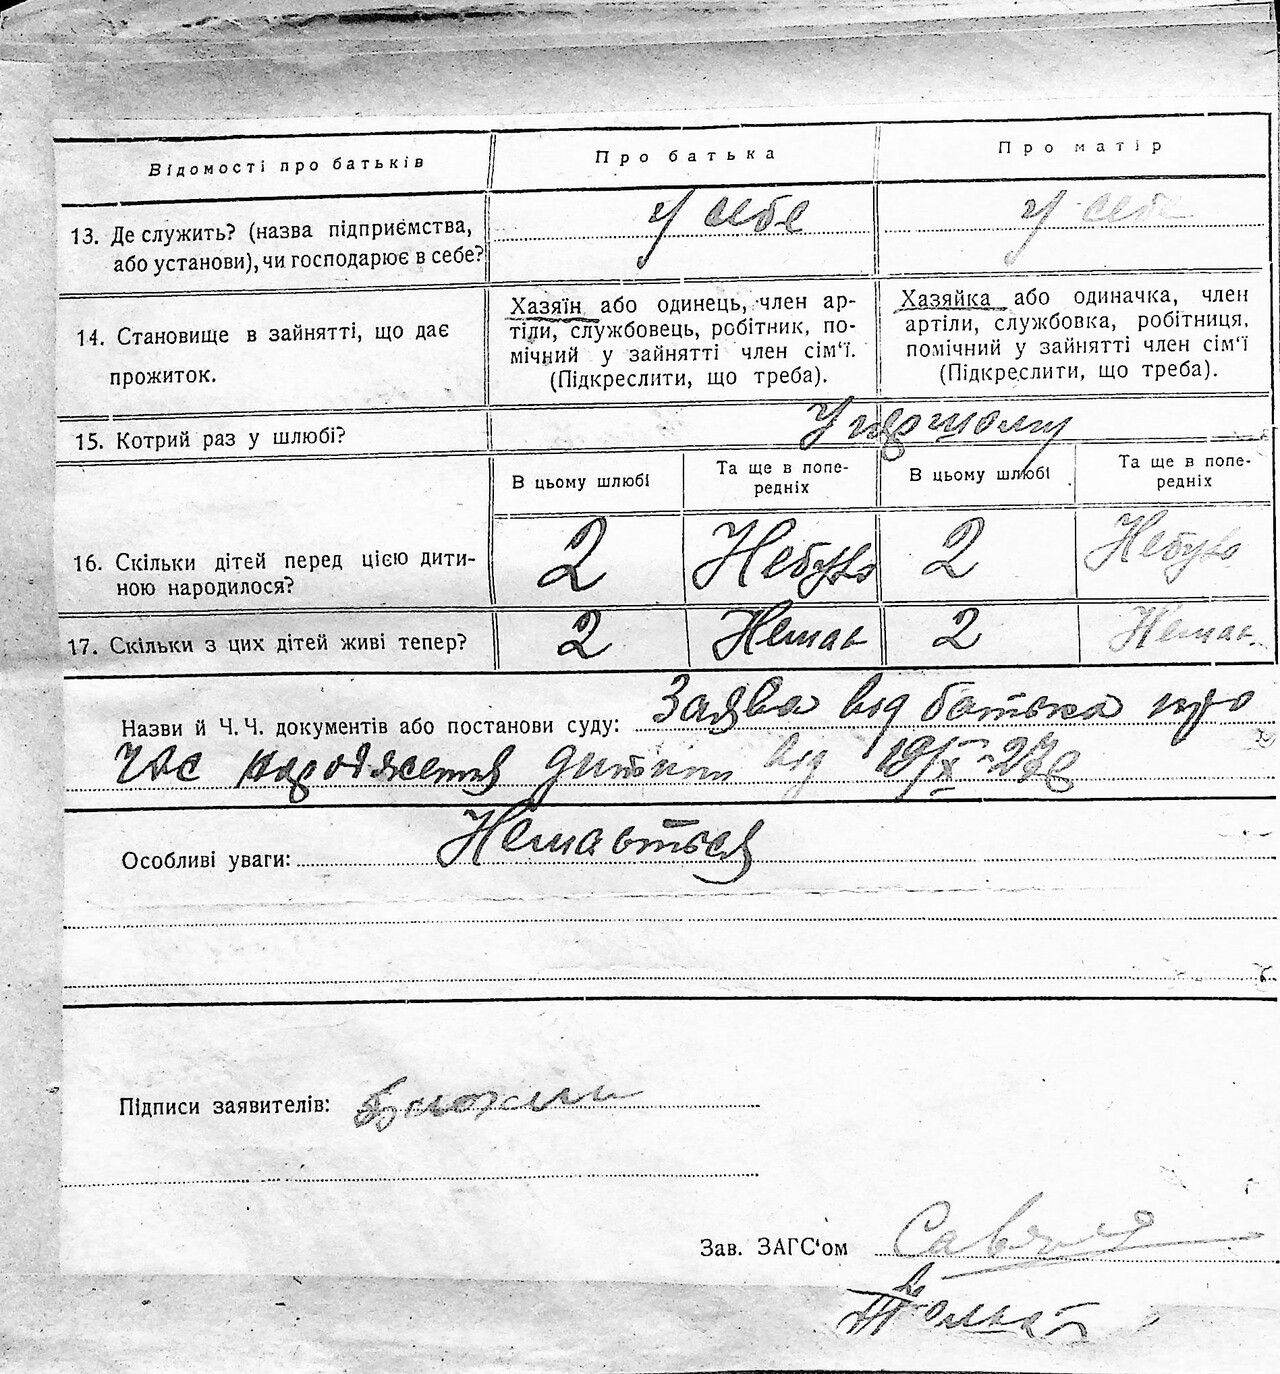 Відомості про батьків
Про батька
Про матір
13. Де служить? (назва підприємства,
або установи), чи господарює в себе?
У себе
У себе
14. Становище в зайнятті, що дає
прожиток.
Хазяїн або одинець, член ар-
тіли, службовець, робітник, по-
мічний у зайнятті член сім'ї.
(Підкреслити, що треба).
Хазяйка або одиначка, член
артіли, службовка, робітниця,
помічний у зайнятті член сім'ї
(Підкреслити, що треба).
15. Котрий раз у шлюбі?
У першому
В цьому шлюбі
Та ще в попе-
редніх
В цьому шлюбі
Та ще в попе-
редніх
16. Скільки дітей перед цією дити-
ною народилося?
2
Небуло
2
Небуло
17. Скільки з цих дітей живі тепер?
2
Немає
2
Немає
Назви й Ч. Ч. документів або постанови суду: Заява від батька про
час народження дитини від 19/X-27р
Особливі уваги: Немається
Підписи заявителів:
Зав. ЗАГС'ом